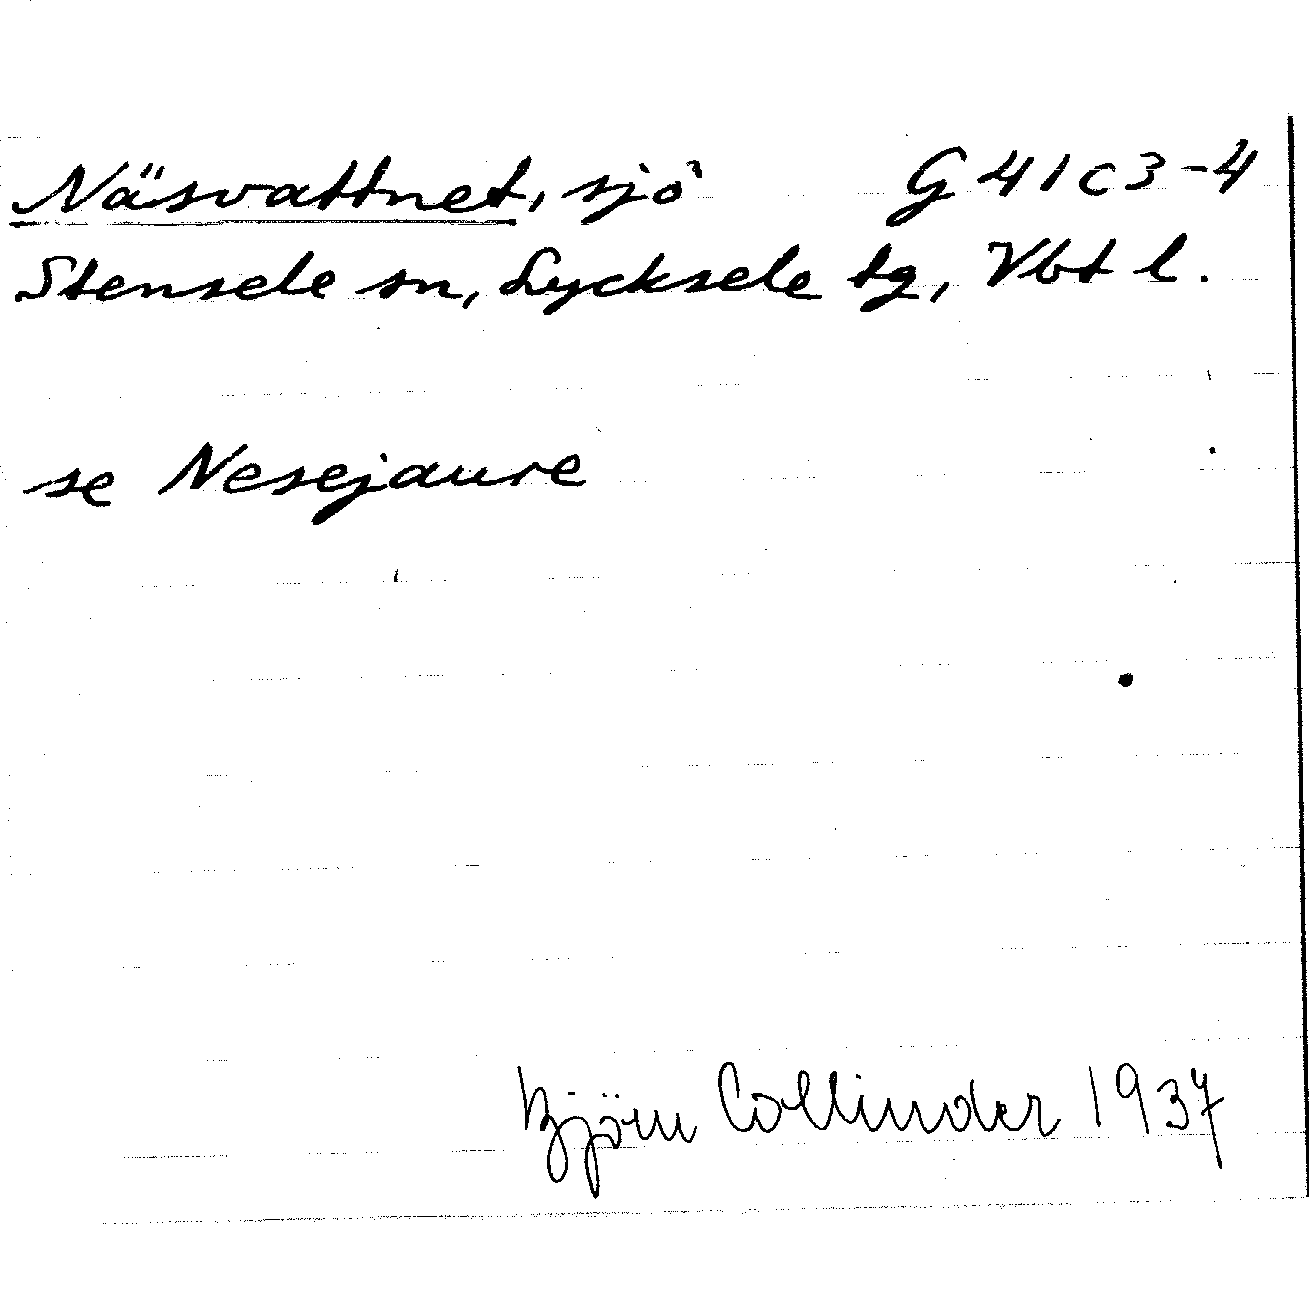 Näsvattnet, sjö G 41 c 3-4
Stensele sn, Lycksele tg, Vbt l.
se Nesejaure
Björn Collinder 1937